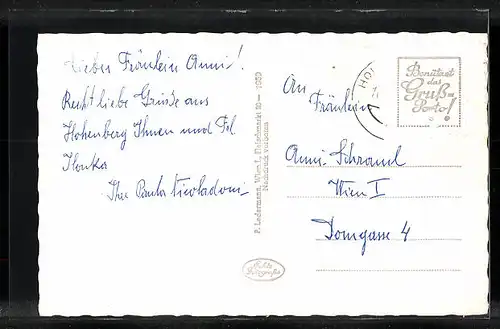 Liebes Fräulein Anni!
Recht liebe Grüße aus
Hohenberg Ihnen und Frl.
Ilonka
Ihre
P. Ledermann, Wien I., Fleischmarkt 20 —
Nachdruck verboten
Echte
Photographie
HOH
Benützet
das
Gruß-
Porto!
An
Fräulein
Anni Schraml
Wien I
Domgasse 4